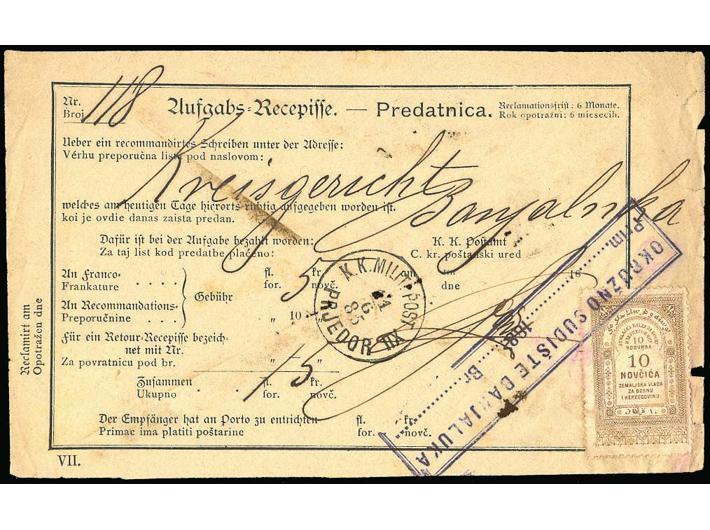 Nr.
Broj 118
Aufgabs-Recepisse. — Predatnica.
Reclamationsfrist: 6 Monate.
Rok opotražni: 6 miesecih.
Ueber ein recommandirtes Schreiben unter der Adresse:
Vérhu preporučna lista pod naslovom:
Kreisgericht
Banjaluka
welches am heutigen Tage hierorts richtig aufgegeben worden ist.
koi je ovdie danas zaista predan.
Dafür ist bei der Aufgabe bezahlt worden:
Za taj list kod predatbe plaćeno:
K. K. Postamt
C. kr. poštanski ured
An Franco-
Frankature
An Recommandations-
Preporučnine
Gebühr
fl. 5 kr.
for. novč.
" 10 "
am 18
dne
Für ein Retour-Recepisse bezeichnet mit Nr.
Za povratnicu pod br.
Zusammen
Ukupno
fl. 15 kr.
for. novč.
Der Empfänger hat an Porto zu entrichten
Primac ima platiti poštarine
fl. kr.
for. novč.
VII.
Reclamirt am
Opotražen dne
K.K. MILIT. POST
PRJEDOR
11
6
85
Prim. 188
OKRUŽNO SUDIŠTE BANJALUKA
Br.
10
NOVČIĆA
10
NOVČIĆA
ZEMALJSKA VLADA
ZA BOSNU
I HERCEGOVINU